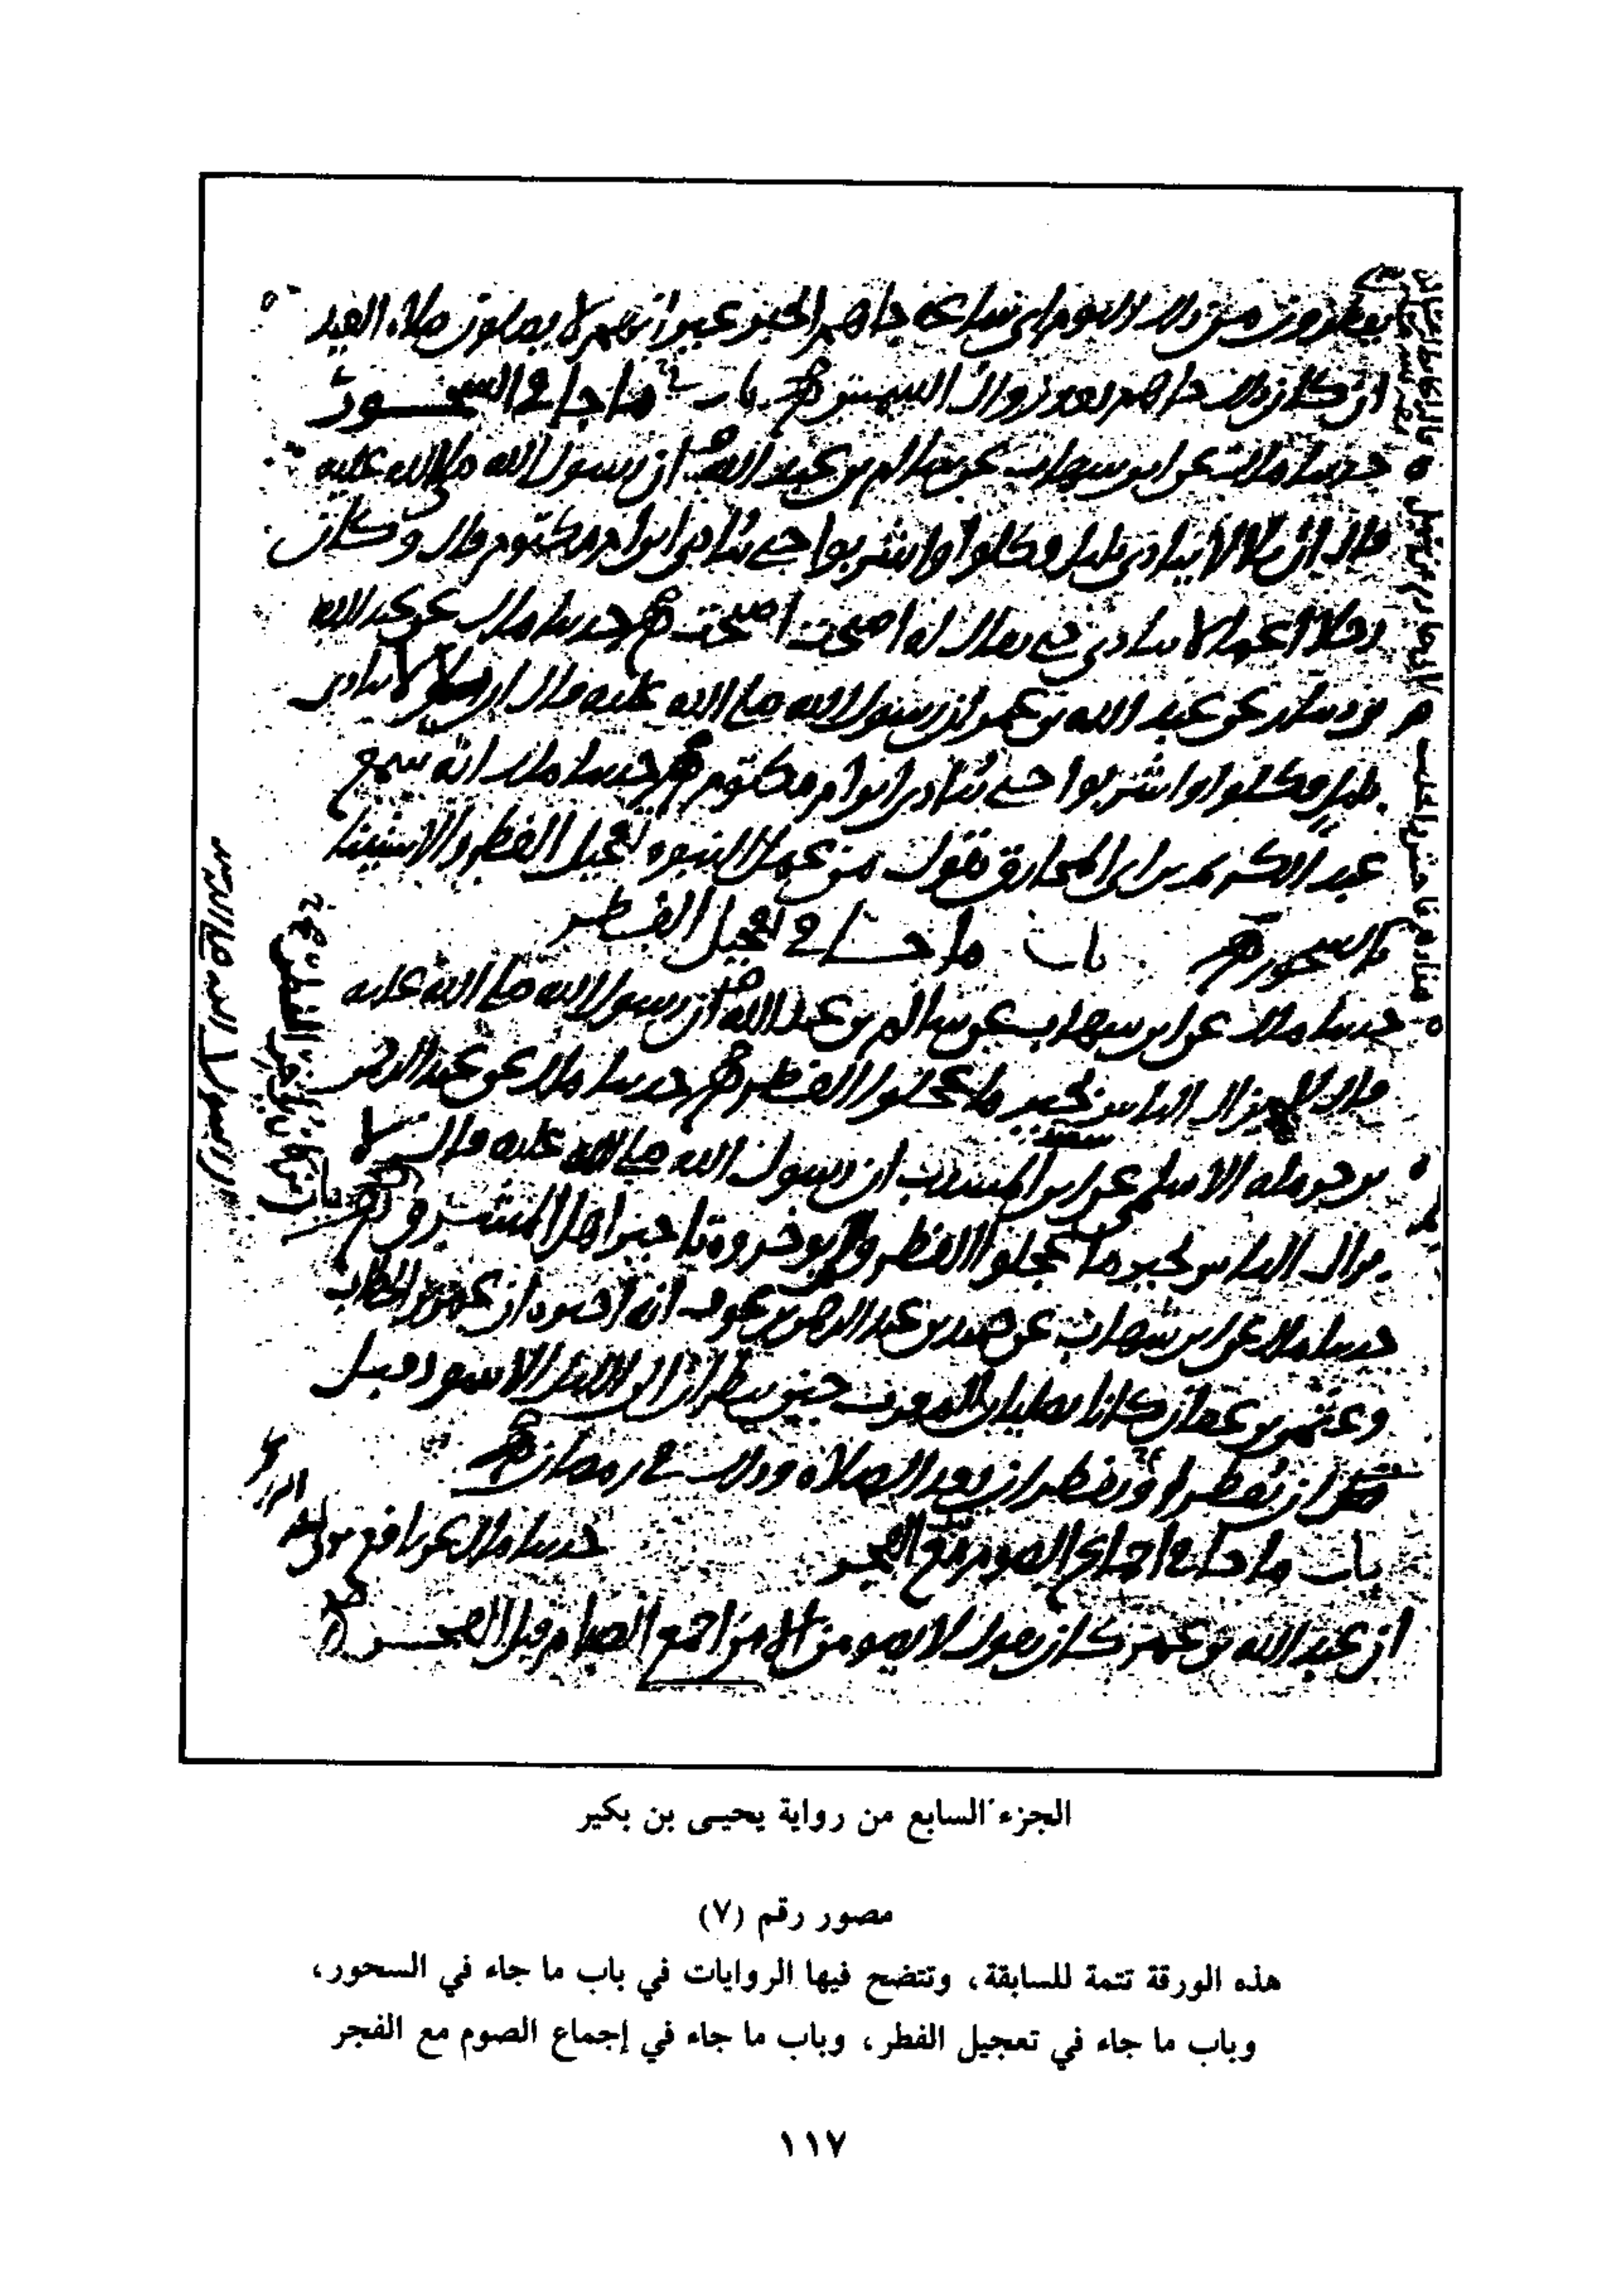 يفطرون من ذلك اليوم اي ساعة جاهم الخبر غير انهم لا يصلون صلاة العيد
ان كان ذلك جاهم بعد زوال الشمس باب ما جا في السحور
حدثنا ملك عن ابن شهاب عن سالم بن عبد الله ان رسول الله صلى الله عليه
قال ان بلالا ينادي بليل فكلوا واشربوا حتى ينادي ابن ام مكتوم قال وكان
رجلا اعمى لا ينادي حتى يقال له اصبحت اصبحت حدثنا ملك عن عبد الله
بن دينار عن عبد الله بن عمر ان رسول الله صلى الله عليه قال ان بلالا ينادي
بليل فكلوا واشربوا حتى ينادي ابن ام مكتوم حدثنا ملك انه سمع
عبد الكريم بن ابي المخارق يقول من عمل النبوه تعجيل الفطر والاستينا
بالسحور باب ما جا في تعجيل الفطر
حدثنا ملك عن ابن شهاب عن سالم بن عبد الله ان رسول الله صلى الله عليه
قال لا يزال الناس بخير ما عجلوا الفطر حدثنا ملك عن عبد الرحمن
بن حرمله الاسلمي عن سعيد بن المسيب ان رسول الله صلى الله عليه قال لا
يزال الناس بخير ما عجلوا الفطر ولم يوخروه تاخير اهل المشرق
حدثنا ملك عن ابن شهاب عن حميد بن عبد الرحمن بن عوف انه اخبره ان عمر بن الخطاب
وعثمن بن عفان كانا يصليان المغرب حين ينظران الى الليل الاسود قبل
ان يفطرا ويفطران بعد الصلاة وذلك في رمضان
باب ما جا في اجماع الصوم مع الفجر حدثنا ملك عن نافع مولى
ان عبد الله بن عمر كان يقول لا يصومن الا من اجمع الصيام قبل الفجر
الجزء السابع من رواية يحيى بن بكير
مصور رقم (٧)
هذه الورقة تتمة للسابقة، وتتضح فيها الروايات في باب ما جاء في السحور،
وباب ما جاء في تعجيل الفطر، وباب ما جاء في إجماع الصوم مع الفجر
١١٧